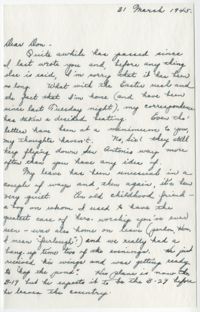 21 March 1945.
Dear Don.
Quite awhile has passed since
I last wrote you and, before any thing
else is said, I'm sorry that it has been
so long. What with the Easter rush and
the fact that I'm home (and have been
since last Tuesday night), my correspondence
has taken a decided beating. Even tho'
letters have been at a minimum to you,
my thoughts haven't. No sir! they still
keep flying down San Antonio way more
often than you have any idea of.
My leave has been unusual in a
couple of ways and then again, it's been
very quiet. An old childhood friend -
a boy on whom I used to have the
greatest case of hero worship you've ever
seen - was also home on leave (pardon Hon,
I mean furlough!) and we really had a
bang-up time two of the evenings. He just
received his wings and was getting ready
to "hop the pond." His plane is now the
B-17 but he expects it to be the B-29 before
he leaves the country.